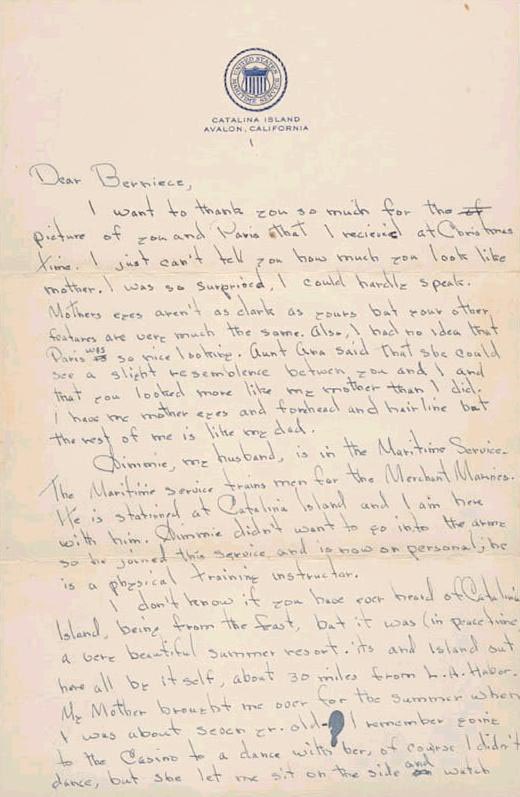 UNITED STATES MARITIME SERVICE
CATALINA ISLAND
AVALON, CALIFORNIA
1
Dear Berniece,
I want to thank you so much for the of
picture of you and Paris that I recieved at Christmas
time. I just can't tell you how much you look like
mother. I was so surprised, I could hardly speak.
Mothers eyes aren't as dark as yours but your other
features are very much the same. Also, I had no idea that
Paris was so nice looking. Aunt Ana said that she could
see a slight resemblence between you and I and
that you looked more like my mother than I did.
I have my mother eyes and forehead and hairline but
the rest of me is like my dad.
Jimmie, my husband, is in the Maritime Service.
The Maritime service trains men for the Merchant Marines.
He is stationed at Catalina Island and I am here
with him. Jimmie didn't want to go into the army
so he joined this service, and is now on personal, he
is a physical training instructor.
I don't know if you have ever heard of Catalina
Island, being from the east, but it was (in peace time)
a very beautiful summer resort. its and Island out
here all by it self, about 30 miles from L.A. Habor.
My Mother brought me over for the summer when
I was about seven yr. old. I remember going
to the Casino to a dance with her, of course I didn't
dance, but she let me sit on the side and watch